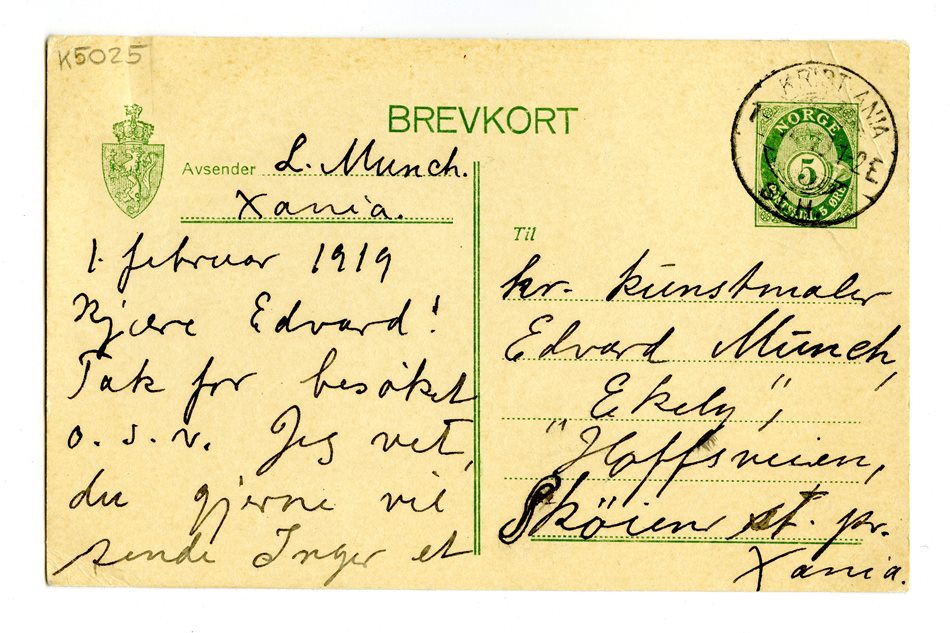 K5025
BREVKORT
Avsender L. Munch.
Xania.
1. februar 1919
Kjære Edvard!
Tak for besøket
o. s. v. Jeg vet,
du gjerne vil
sende Inger et
KRISTIANIA
NORGE
5
Til
hr. kunstmaler
Edvard Munch,
"Ekely",
Hoffsveien,
Skøien st. pr.
Xania.